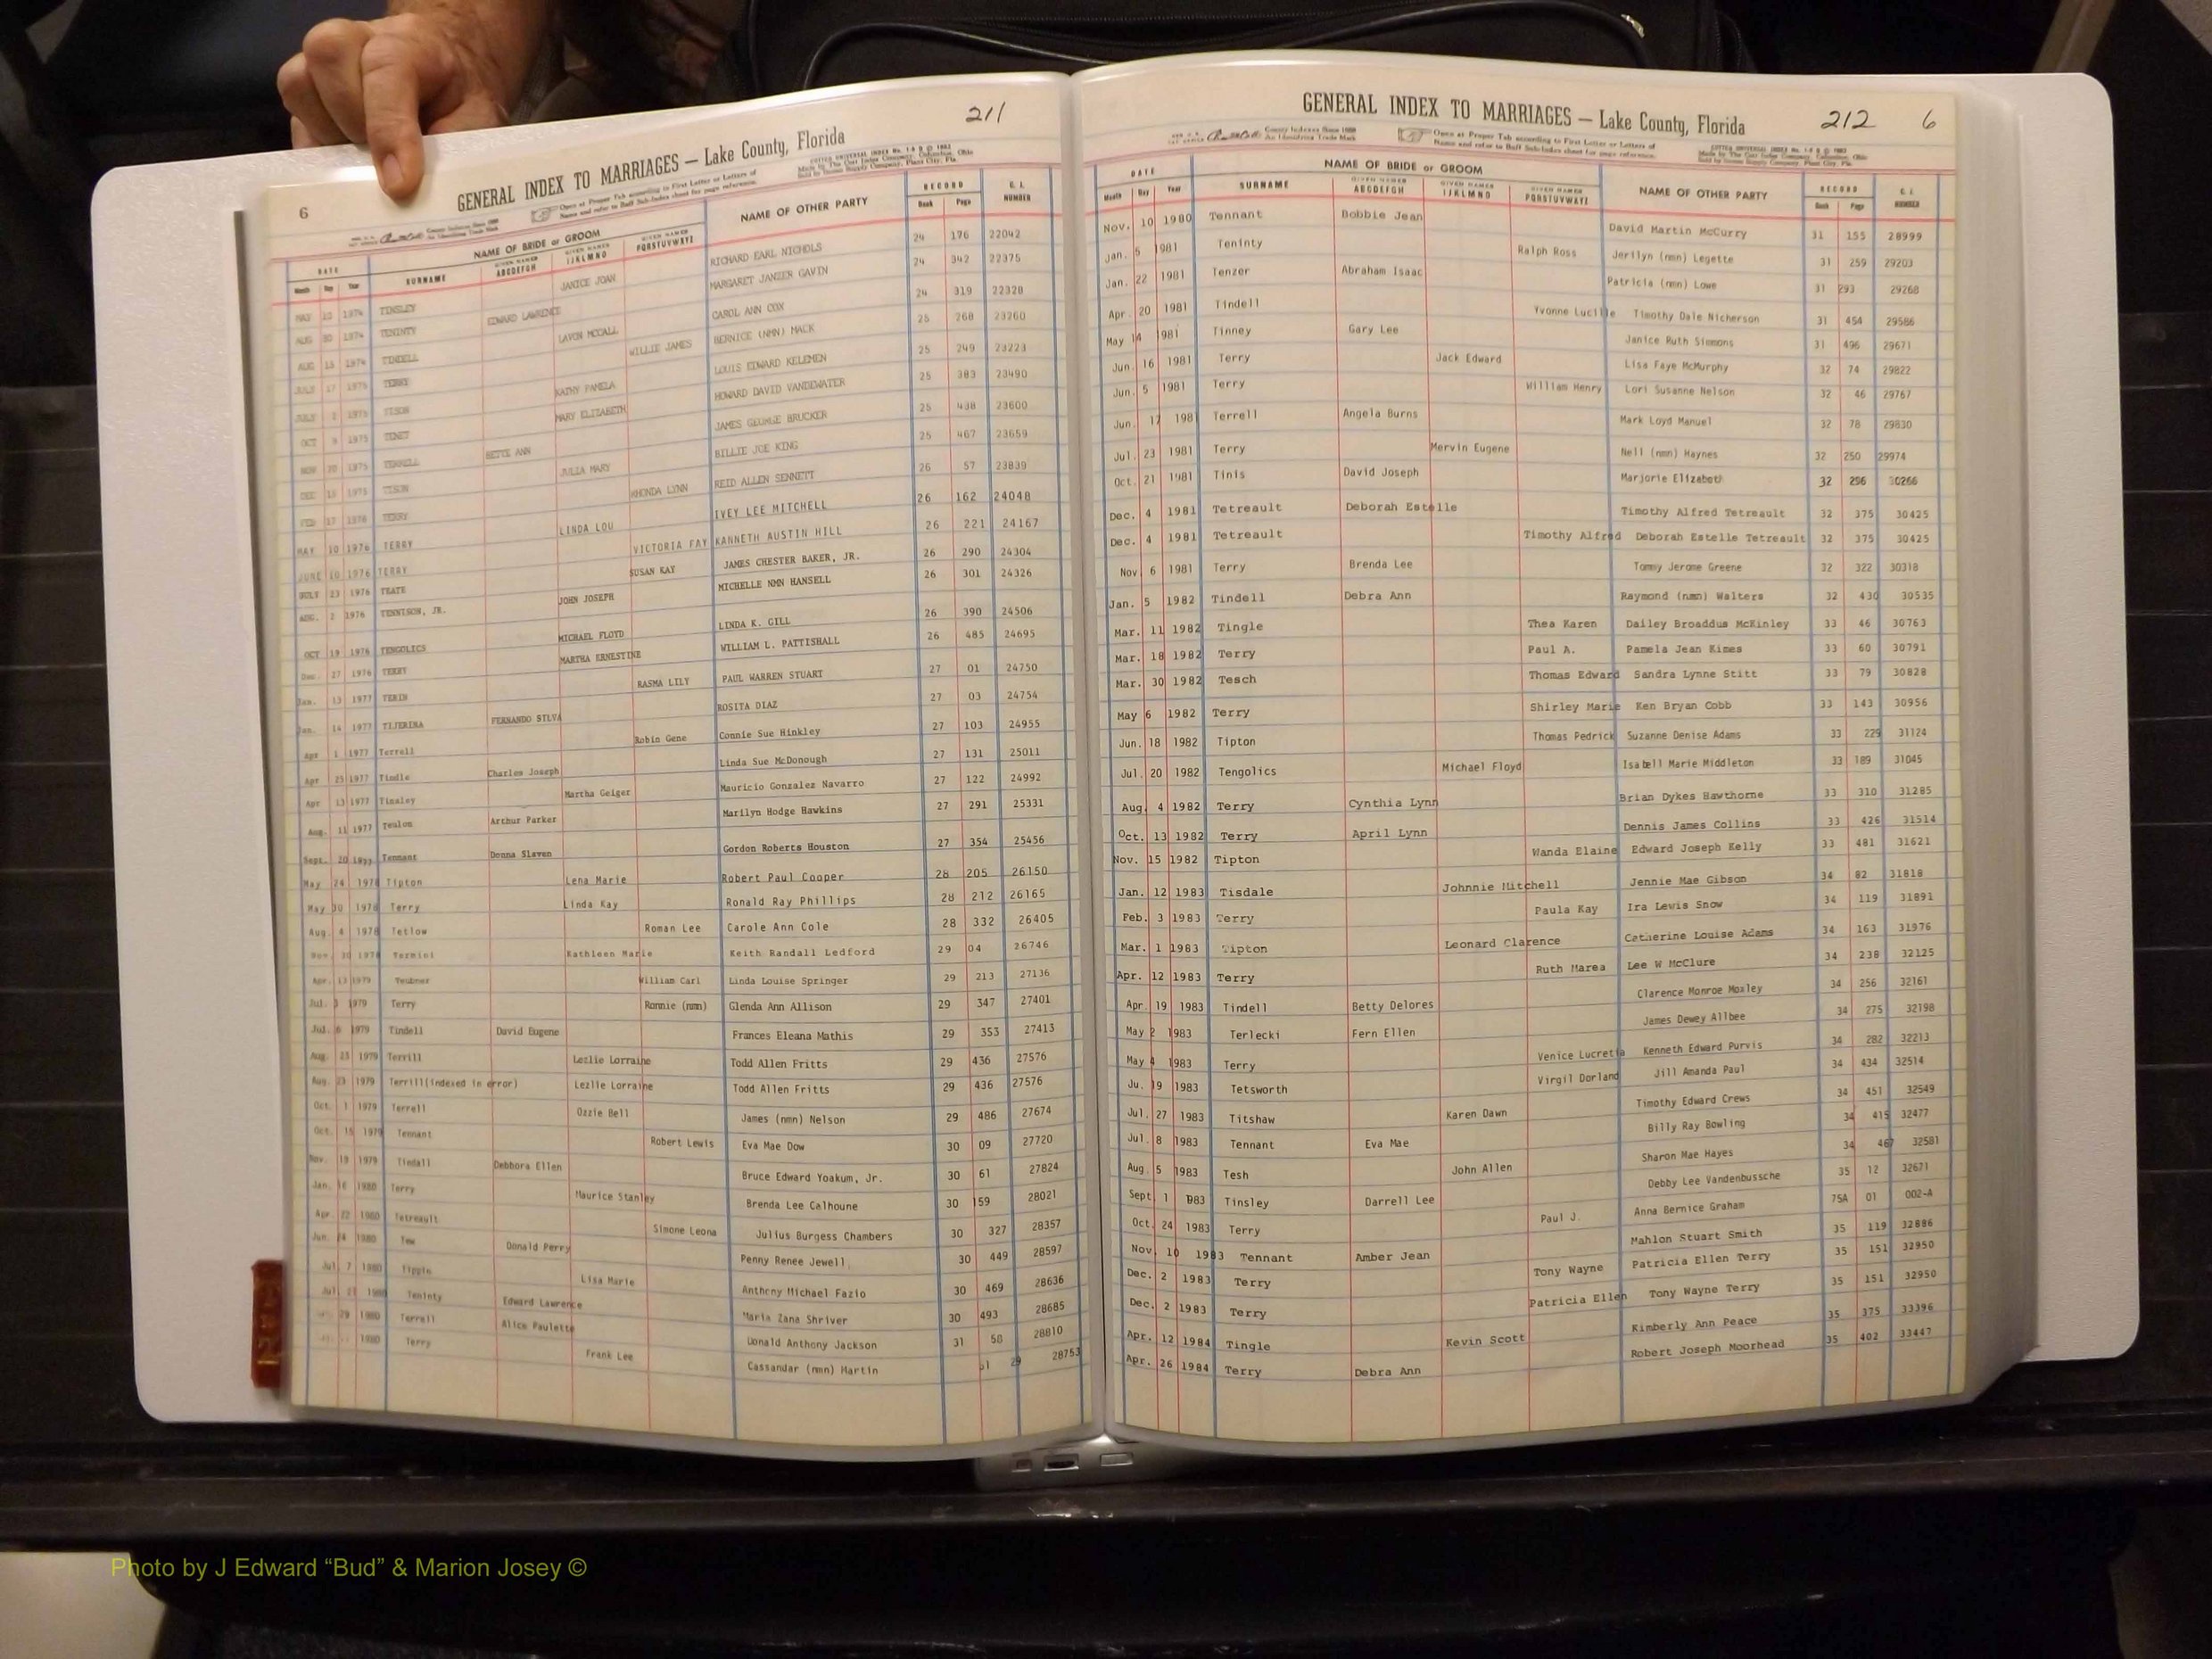 211
6
GENERAL INDEX TO MARRIAGES — Lake County, Florida
Open at Proper Tab according to First Letter or Letters of
Name and refer to Buff Sub-Index sheet for page reference.
DATE NAME OF BRIDE or GROOM NAME OF OTHER PARTY RECORD G. I.
Month Day Year SURNAME GIVEN NAMES ABCDEFGH GIVEN NAMES IJKLMNO GIVEN NAMES PQRSTUVWXYZ Book Page NUMBER
1974 TINSLEY JANICE JOAN RICHARD EARL NICHOLS 24 176 22042
AUG 30 1974 TENINTY EDWARD LAWRENCE MARGARET JANZER GAVIN 24 342 22375
AUG 15 1974 TINDELL LAVON MCCALL CAROL ANN COX 24 319 22328
JULY 17 1975 TERRY WILLIE JAMES BERNICE (NMN) MACK 25 268 23260
JULY 2 1975 TISON KATHY PAMELA LOUIS EDWARD KELEMEN 25 249 23223
OCT 9 1975 TENET MARY ELIZABETH HOWARD DAVID VANDEWATER 25 383 23490
NOV 20 1975 TERRELL BETTE ANN JAMES GEORGE BRUCKER 25 438 23600
DEC 15 1975 TISON JULIA MARY BILLIE JOE KING 25 467 23659
FEB 17 1976 TERRY RHONDA LYNN REID ALLEN SENNETT 26 57 23839
MAY 10 1976 TERRY LINDA LOU IVEY LEE MITCHELL 26 162 24048
JUNE 10 1976 TERRY VICTORIA FAY KANNETH AUSTIN HILL 26 221 24167
JULY 23 1976 TEATE SUSAN KAY JAMES CHESTER BAKER, JR. 26 290 24304
AUG. 2 1976 TENNISON, JR. JOHN JOSEPH MICHELLE NMN HANSELL 26 301 24326
OCT 19 1976 TENGOLICS MICHAEL FLOYD LINDA K. GILL 26 390 24506
Dec. 27 1976 TERRY MARTHA ERNESTINE WILLIAM L. PATTISHALL 26 485 24695
Jan. 13 1977 TERIN RASMA LILY PAUL WARREN STUART 27 01 24750
Jan. 14 1977 TIJERINA FERNANDO SILVA ROSITA DIAZ 27 03 24754
Apr 1 1977 Terrell Robin Gene Connie Sue Hinkley 27 103 24955
Apr 25 1977 Tindle Charles Joseph Linda Sue McDonough 27 131 25011
Apr 13 1977 Tinsley Martha Geiger Mauricio Gonzalez Navarro 27 122 24992
Aug. 11 1977 Teulon Arthur Parker Marilyn Hodge Hawkins 27 291 25331
Sept. 20 1977 Tennant Donna Slaven Gordon Roberts Houston 27 354 25456
May 24 1978 Tipton Lena Marie Robert Paul Cooper 28 205 26150
May 30 1978 Terry Linda Kay Ronald Ray Phillips 28 212 26165
Aug. 4 1978 Tetlow Roman Lee Carole Ann Cole 28 332 26405
Nov. 30 1978 Termini Kathleen Marie Keith Randall Ledford 29 04 26746
Apr. 13 1979 Teubner William Carl Linda Louise Springer 29 213 27136
Jul. 3 1979 Terry Ronnie (nmn) Glenda Ann Allison 29 347 27401
Jul. 6 1979 Tindell David Eugene Frances Eleana Mathis 29 353 27413
Aug. 23 1979 Terrill Lezlie Lorraine Todd Allen Fritts 29 436 27576
Aug. 23 1979 Terrill(indexed in error) Lezlie Lorraine Todd Allen Fritts 29 436 27576
Oct. 1 1979 Terrell Ozzie Bell James (nmn) Nelson 29 486 27674
Oct. 15 1979 Tennant Robert Lewis Eva Mae Dow 30 09 27720
Nov. 19 1979 Tindall Debbora Ellen Bruce Edward Yoakum, Jr. 30 61 27824
Jan. 16 1980 Terry Maurice Stanley Brenda Lee Calhoune 30 159 28021
Apr. 22 1980 Tetreault Simone Leona Julius Burgess Chambers 30 327 28357
Jun. 24 1980 Tew Donald Perry Penny Renee Jewell 30 449 28597
Jul. 7 1980 Tippin Lisa Marie Anthony Michael Fazio 30 469 28636
Jul. 21 1980 Teninty Edward Lawrence Maria Zana Shriver 30 493 28685
29 1980 Terrell Alice Paulette Donald Anthony Jackson 31 58 28810
1980 Terry Frank Lee Cassandar (nmn) Martin 31 29 28753
212 6
GENERAL INDEX TO MARRIAGES — Lake County, Florida
Open at Proper Tab according to First Letter or Letters of
Name and refer to Buff Sub-Index sheet for page reference.
DATE NAME OF BRIDE or GROOM NAME OF OTHER PARTY RECORD G. I.
Month Day Year SURNAME GIVEN NAMES ABCDEFGH GIVEN NAMES IJKLMNO GIVEN NAMES PQRSTUVWXYZ Book Page NUMBER
Nov. 10 1980 Tennant Bobbie Jean David Martin McCurry 31 155 28999
Jan. 5 1981 Teninty Ralph Ross Jerilyn (nmn) Legette 31 259 29203
Jan. 22 1981 Tenzer Abraham Isaac Patricia (nmn) Lowe 31 293 29268
Apr. 20 1981 Tindell Yvonne Lucille Timothy Dale Nicherson 31 454 29586
May 14 1981 Tinney Gary Lee Janice Ruth Simmons 31 496 29671
Jun. 16 1981 Terry Jack Edward Lisa Faye McMurphy 32 74 29822
Jun. 5 1981 Terry William Henry Lori Susanne Nelson 32 46 29767
Jun. 17 198 Terrell Angela Burns Mark Loyd Manuel 32 78 29830
Jul. 23 1981 Terry Mervin Eugene Nell (nmn) Haynes 32 250 29974
Oct. 21 1981 Tinis David Joseph Marjorie Elizabeth 32 296 30266
Dec. 4 1981 Tetreault Deborah Estelle Timothy Alfred Tetreault 32 375 30425
Dec. 4 1981 Tetreault Timothy Alfred Deborah Estelle Tetreault 32 375 30425
Nov 6 1981 Terry Brenda Lee Tommy Jerome Greene 32 322 30318
Jan. 5 1982 Tindell Debra Ann Raymond (nmn) Walters 32 430 30535
Mar. 11 1982 Tingle Thea Karen Dailey Broaddus McKinley 33 46 30763
Mar. 18 1982 Terry Paul A. Pamela Jean Kimes 33 60 30791
Mar. 30 1982 Tesch Thomas Edward Sandra Lynne Stitt 33 79 30828
May 6 1982 Terry Shirley Marie Ken Bryan Cobb 33 143 30956
Jun. 18 1982 Tipton Thomas Pedrick Suzanne Denise Adams 33 229 31124
Jul. 20 1982 Tengolics Michael Floyd Isabell Marie Middleton 33 189 31045
Aug. 4 1982 Terry Cynthia Lynn Brian Dykes Hawthorne 33 310 31285
Oct. 13 1982 Terry April Lynn Dennis James Collins 33 426 31514
Nov. 15 1982 Tipton Wanda Elaine Edward Joseph Kelly 33 481 31621
Jan. 12 1983 Tisdale Johnnie Mitchell Jennie Mae Gibson 34 82 31818
Feb. 3 1983 Terry Paula Kay Ira Lewis Snow 34 119 31891
Mar. 1 1983 Tipton Leonard Clarence Catherine Louise Adams 34 163 31976
Apr. 12 1983 Terry Ruth Marea Lee W McClure 34 238 32125
Apr. 19 1983 Tindell Betty Delores Clarence Monroe Moxley 34 256 32161
May 2 1983 Terlecki Fern Ellen James Dewey Allbee 34 275 32198
May 4 1983 Terry Venice Lucretia Kenneth Edward Purvis 34 282 32213
Ju. 19 1983 Tetsworth Virgil Dorland Jill Amanda Paul 34 434 32514
Jul. 27 1983 Titshaw Karen Dawn Timothy Edward Crews 34 451 32549
Jul. 8 1983 Tennant Eva Mae Billy Ray Bowling 34 415 32477
Aug. 5 1983 Tesh John Allen Sharon Mae Hayes 34 467 32581
Sept 1 1983 Tinsley Darrell Lee Debby Lee Vandenbussche 35 12 32671
Oct. 24 1983 Terry Paul J. Anna Bernice Graham 75A 01 002-A
Nov. 10 1983 Tennant Amber Jean Mahlon Stuart Smith 35 119 32886
Dec. 2 1983 Terry Tony Wayne Patricia Ellen Terry 35 151 32950
Dec. 2 1983 Terry Patricia Ellen Tony Wayne Terry 35 151 32950
Apr. 12 1984 Tingle Kevin Scott Kimberly Ann Peace 35 375 33396
Apr. 26 1984 Terry Debra Ann Robert Joseph Moorhead 35 402 33447
Photo by J Edward “Bud” & Marion Josey ©